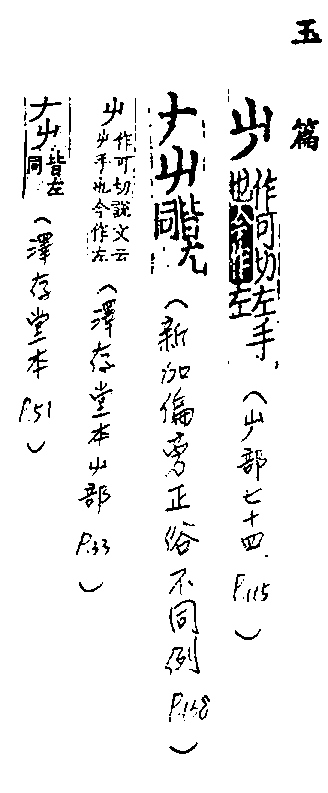 玉篇
屮 作可切左手也今作左 (屮部七十四. P.115)
𠂇屮同皆左 (新加偏旁正俗不同例 P.158)
屮 作可切說文云屮手也今作左 (澤存堂本屮部 P.33)
𠂇屮皆左同 (澤存堂本 P.51)